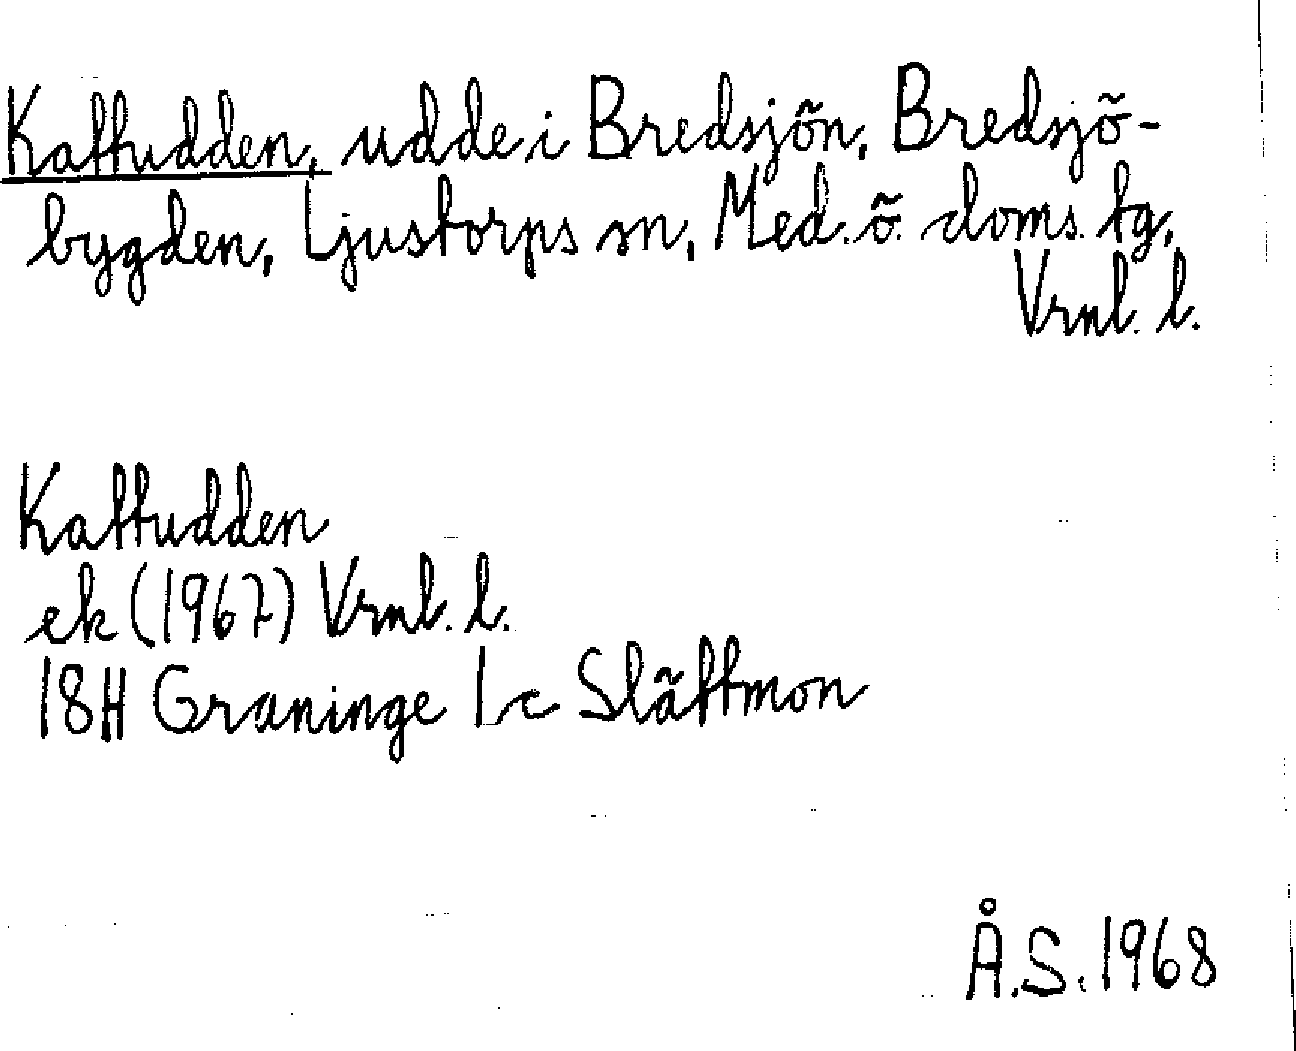 Kattudden, udde i Bredsjön, Bredsjö-
bygden, Ljustorps sn, Med. ö. doms. tg,
Vrnl. l.
Kattudden
ek (1967) Vrnl. l.
18H Graninge 1 c Slättmon
Å.S. 1968